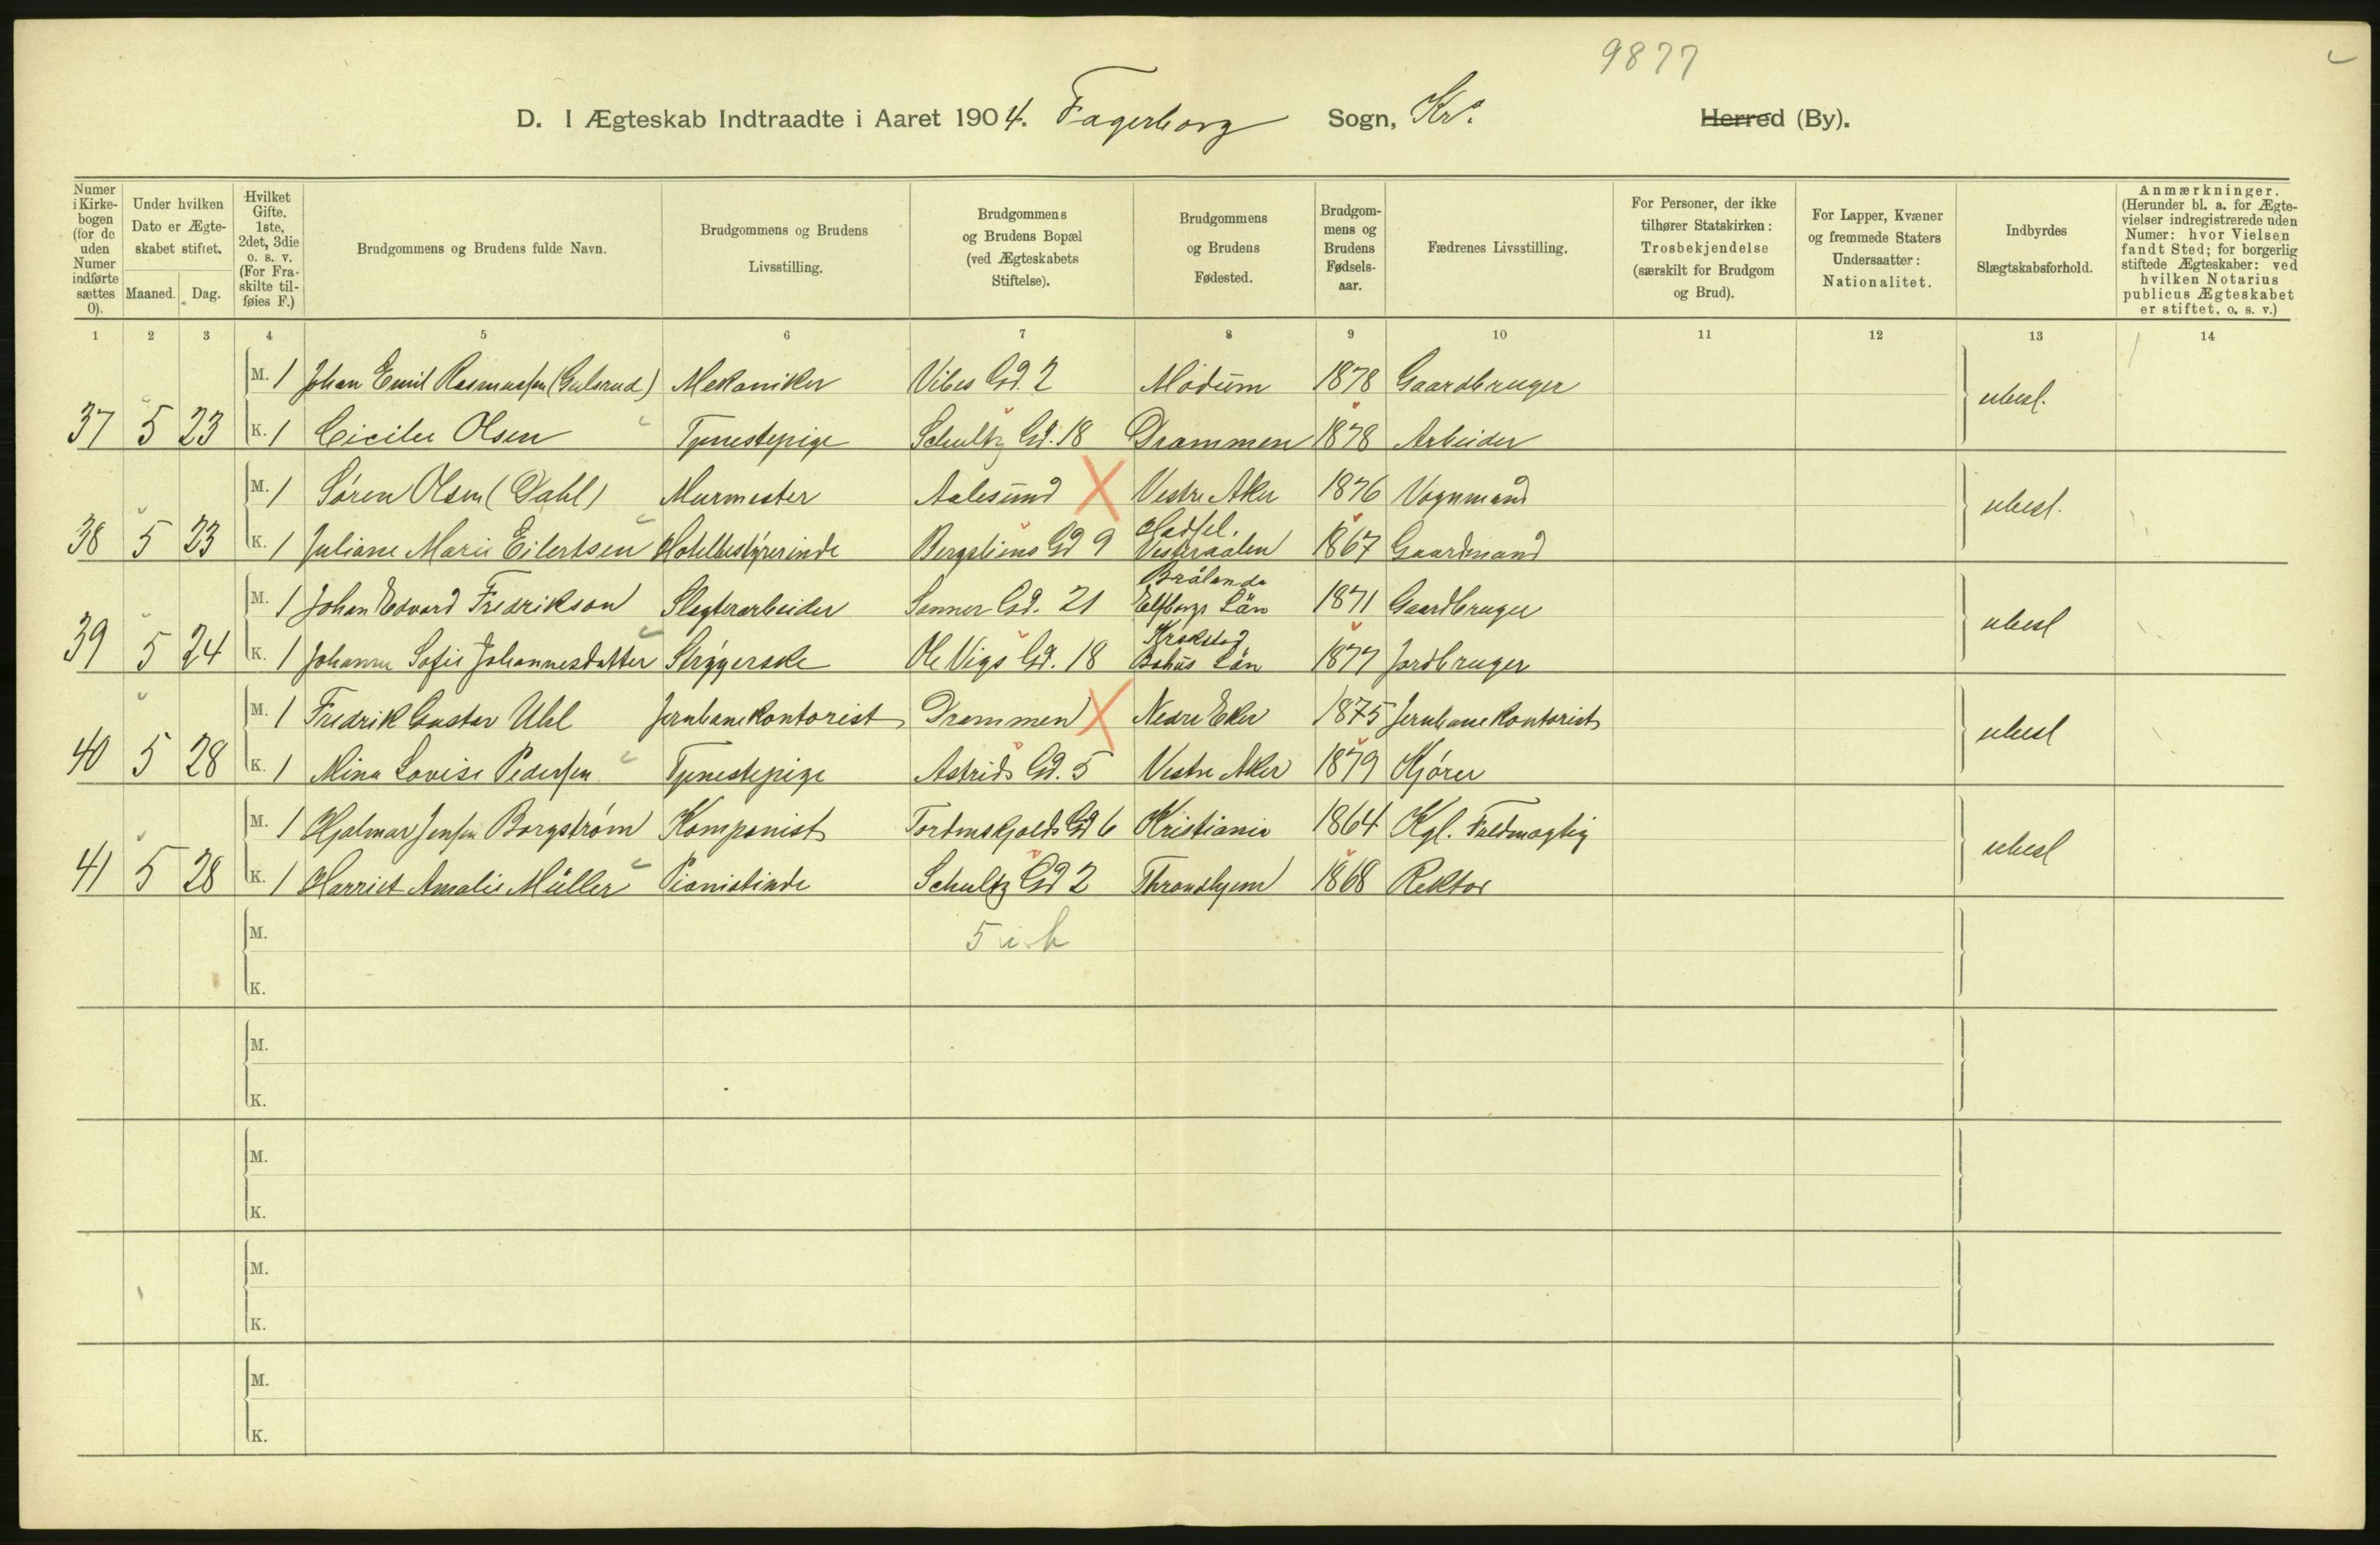 9877
D. I Ægteskab Indtraadte i Aaret 1904. Fagerborg Sogn, Kr.a Herred (By).
Numer i Kirke-bogen (for de uden Numer indførte sættes 0).
Under hvilken Dato er Ægte-skabet stiftet.
Maaned. Dag.
Hvilket Gifte. 1ste, 2det, 3die o. s. v. (For Fra-skilte til-føies F.)
Brudgommens og Brudens fulde Navn.
Brudgommens og Brudens Livsstilling.
Brudgommens og Brudens Bopæl (ved Ægteskabets Stiftelse).
Brudgommens og Brudens Fødested.
Brudgom-mens og Brudens Fødsels-aar.
Fædrenes Livsstilling.
For Personer, der ikke tilhører Statskirken: Trosbekjendelse (særskilt for Brudgom og Brud).
For Lapper, Kvæner og fremmede Staters Undersaatter: Nationalitet.
Indbyrdes Slægtskabsforhold.
Anmærkninger. (Herunder bl. a. for Ægte-vielser indregistrerede uden Numer: hvor Vielsen fandt Sted; for borgerlig stiftede Ægteskaber: ved hvilken Notarius publicus Ægteskabet er stiftet, o. s. v.)
1 2 3 4 5 6 7 8 9 10 11 12 13 14
M. 1 Johan Emil Rasmussen (Gulsrud) Mekaniker Vibes Gd. 2 Modum 1878 Gaardbruger ubesl.
37 5 23 K. 1 Cicilie Olsen Tjenestepige Schultz Gd. 18 Drammen 1878 Arbeider
M. 1 Søren Olsen (Dahl) Murmester Aalesund X Vestre Aker 1876 Vognmand ubesl.
38 5 23 K. 1 Juliane Marie Eilertsen Hotelbestyrerinde Bergsliens Gd 9 Hadsel. Vesteraalen 1867 Gaardmand
M. 1 Johan Edvard Fredrikson Slagterarbeider Sanner Gd. 21 Brålanda Elfborgs Län 1871 Gaardbruger ubesl
39 5 24 K. 1 Johanne Sofie Johannesdatter Strygerske Ole Vigs Gd. 18 Krokstad Bohus Län 1877 Jordbruger
M. 1 Fredrik Gustav Uhl Jernbanekontorist Drammen X Nedre Eker 1875 Jernbanekontorist ubesl
40 5 28 K. 1 Mina Lovise Pedersen Tjenestepige Astrids Gd. 5 Vestre Aker 1879 Kjører
M. 1 Hjalmar Jensen Borgstrøm Komponist Tordenskjolds Gd 6 Kristiania 1864 Kgl. Fuldmægtig ubesl
41 5 28 K. 1 Harriet Amalie Müller Pianistinde Schultz Gd 2 Throndhjem 1868 Rektor
M. 5 i b
K.
M.
K.
M.
K.
M.
K.
M.
K.